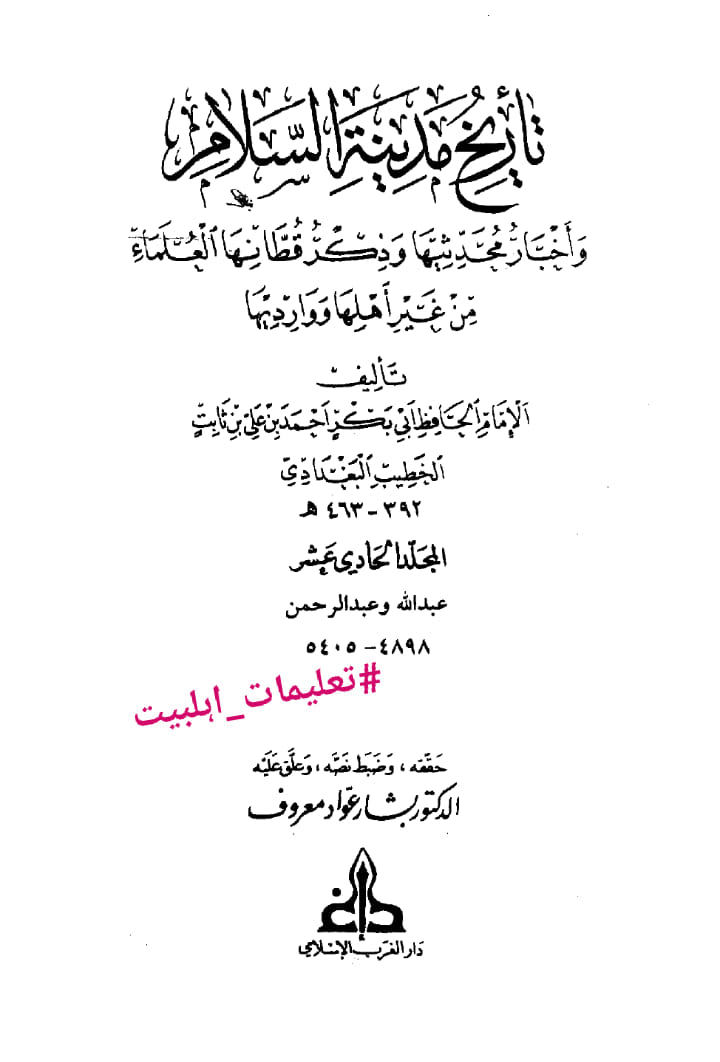 تَأْرِيخُ مَدِينَةِ السَّلَامِ
وَأَخْبَارُ مُحَدِّثِيهَا وَذِكْرُ قُطَّانِهَا الْعُلَمَاءِ
مِنْ غَيْرِ أَهْلِهَا وَوَارِدِيهَا
تَأليف
الإِمَامِ الحَافِظِ أَبِي بَكْرٍ أَحْمَدَ بْنِ عَلِيِّ بْنِ ثَابِتٍ
الخَطِيبِ البَغْدَادِيِّ
٣٩٢ - ٤٦٣ هـ
المجَلّد الحَادِي عَشر
عبدالله وعبدالرحمن
٤٨٩٨ - ٥٤٠٥
#تعلیمات_اہلبیت
حَقّقه ، وَضَبَط نَصّه ، وَعَلّق عَليْه
الدكتور بشار عوّاد معروف
دَار الغَرب الإِسْلَامِي